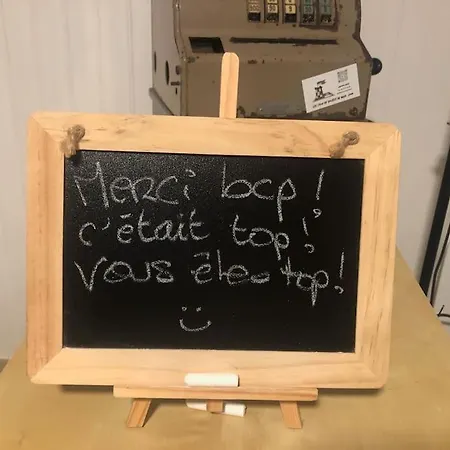 Merci bcp !
c'était top !
vous êtes top !